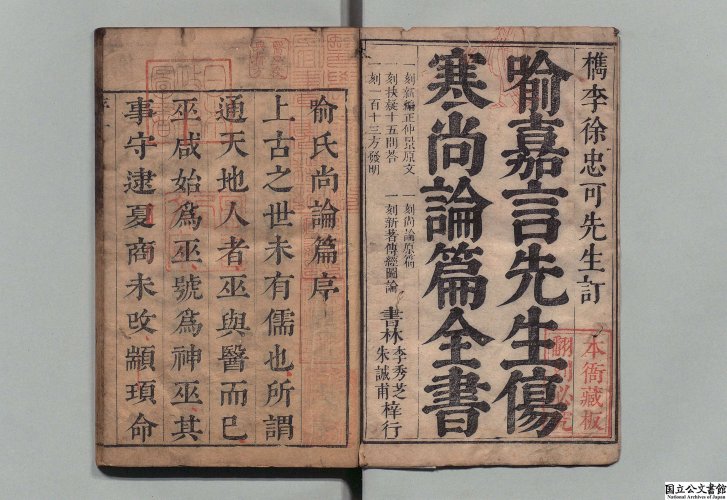 檇李徐忠可先生訂
喻嘉言先生傷
寒尚論篇全書
一刻新編正仲景原文
一刻扶疑十五問答
一刻一百十三方發明
一刻尚論原篇
一刻新著傳經圖論
書林 李秀芝 朱誠甫 梓行
本衙藏板
喻氏尚論篇序
上古之世未有儒也所謂
通天地人者巫與醫而已
巫咸始爲巫號爲神巫其
事守逮夏商未改顓頊命
国立公文書館
National Archives of Japan